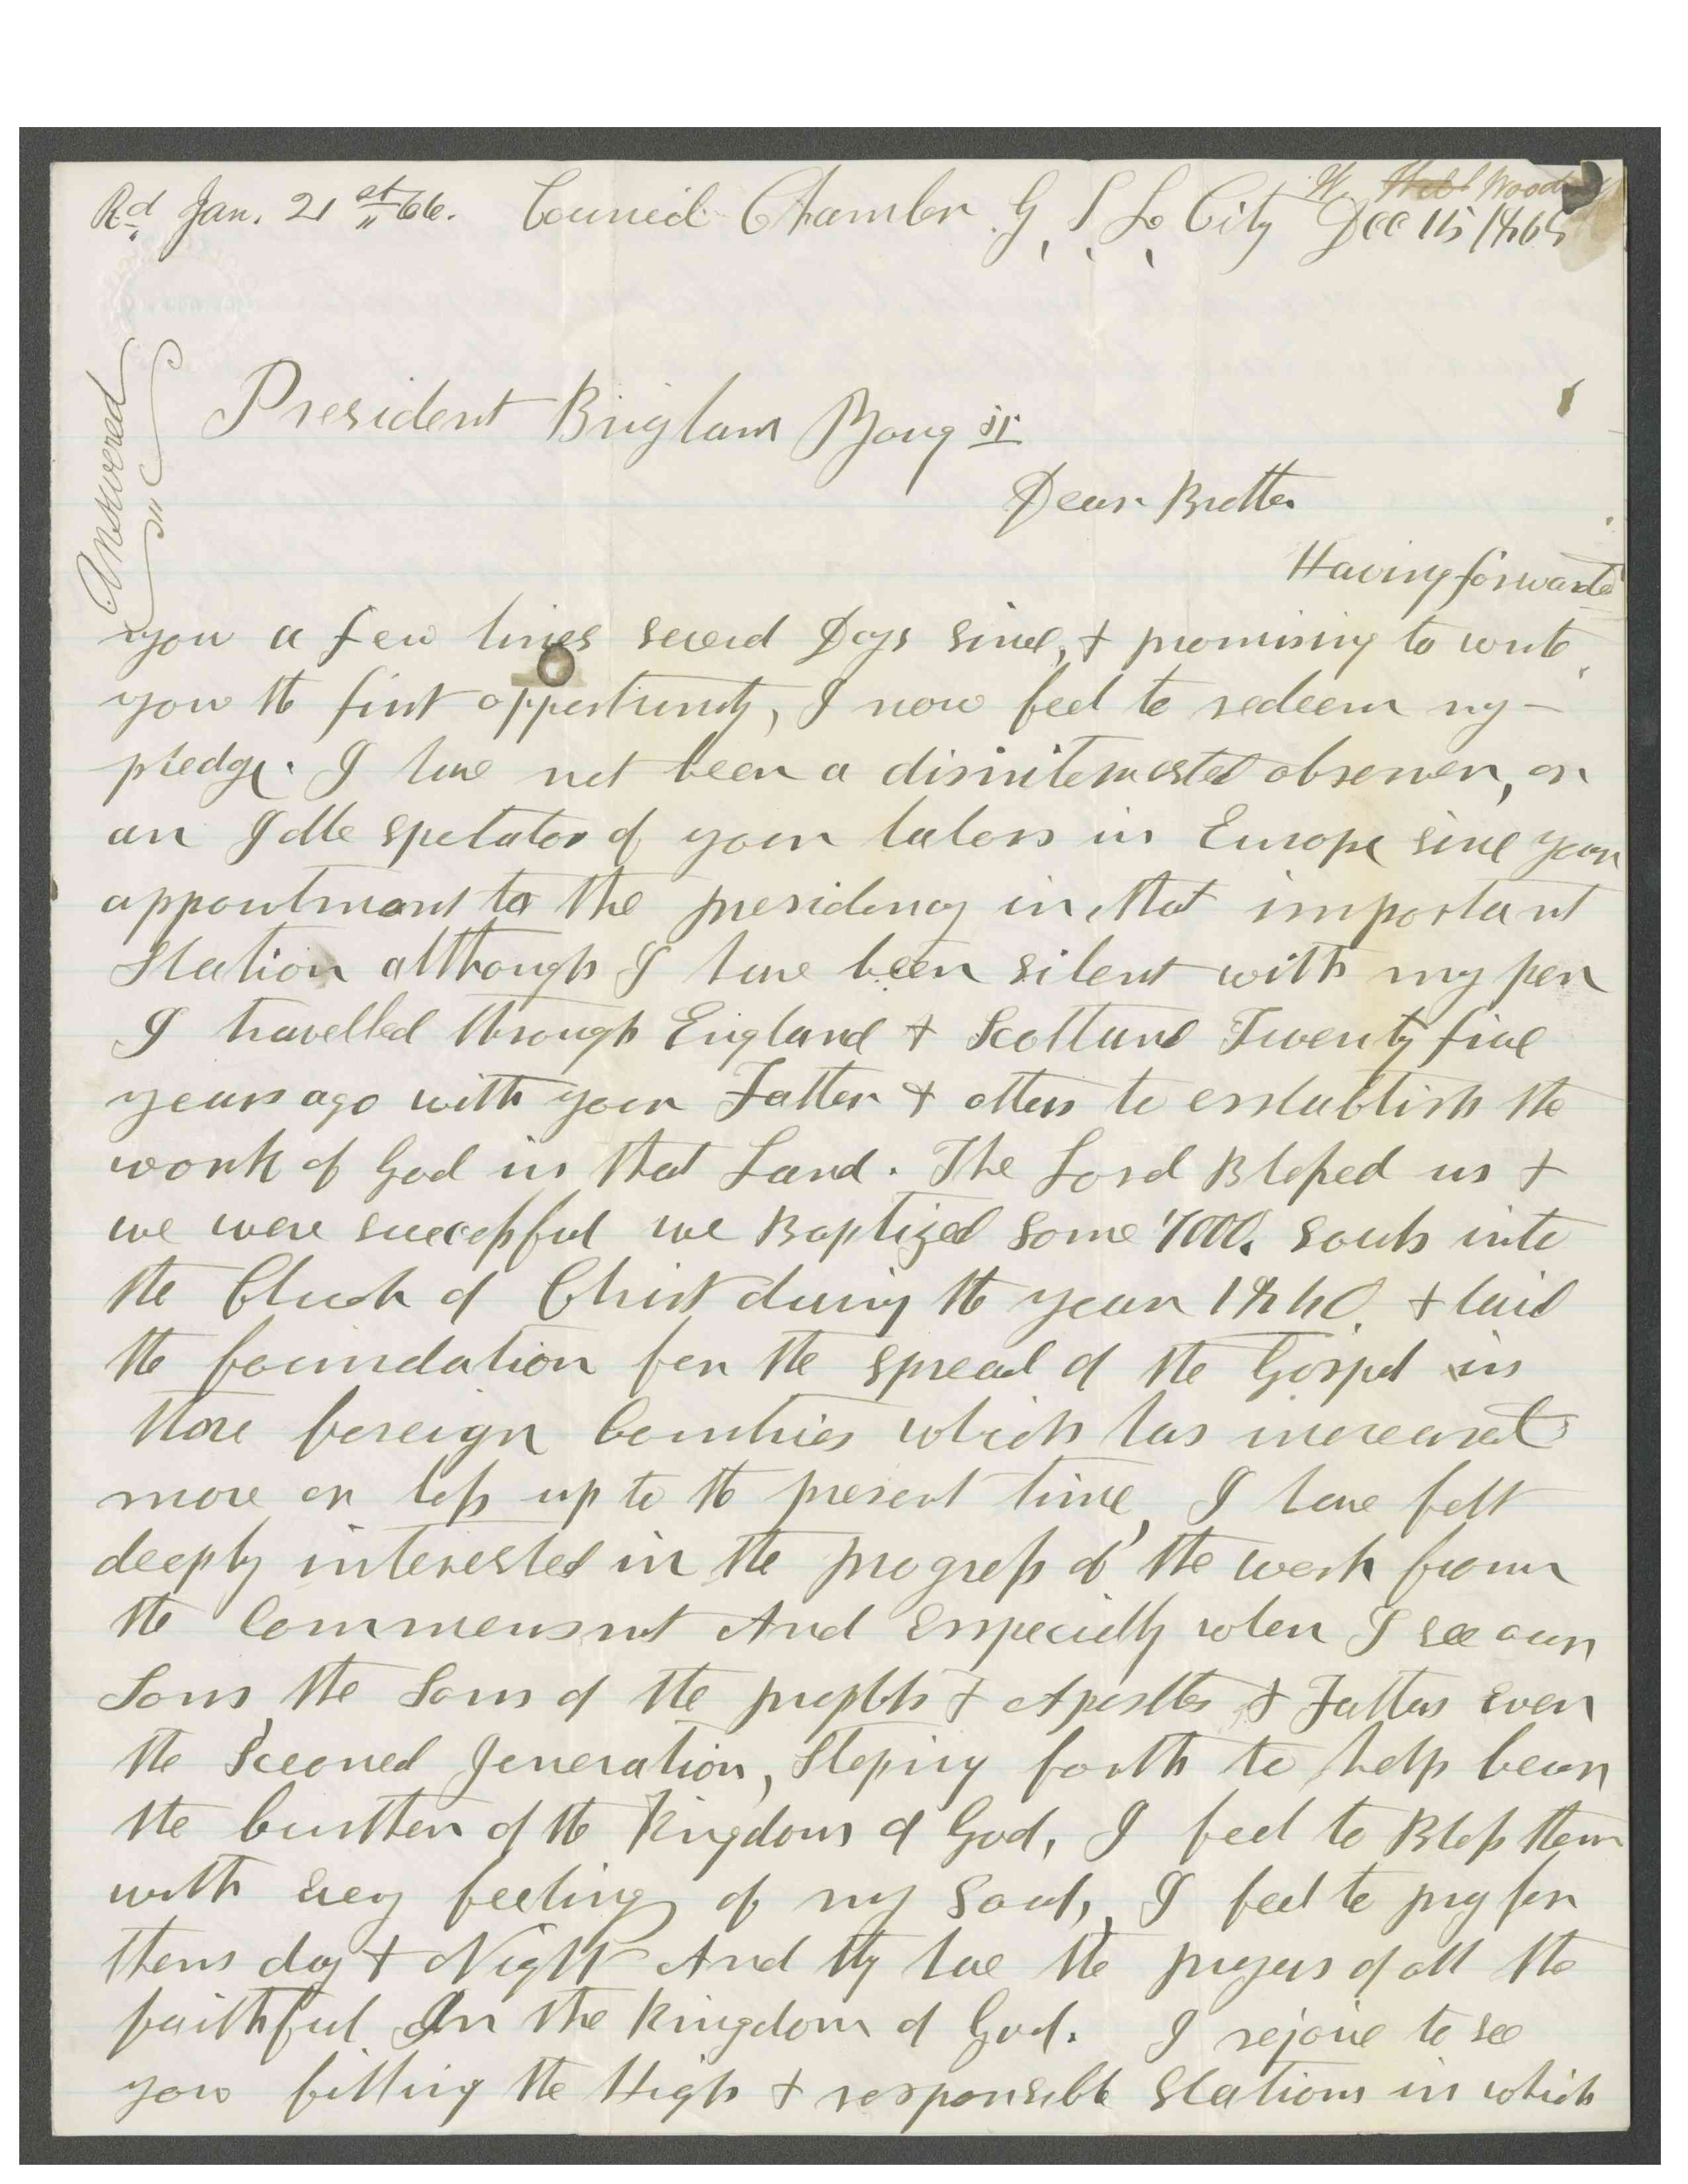 Rd Jan. 21st "66. Council Chamber G, S, L, City Dec 15 1865
W. Woodruff
Answered
President Brigham Young jr
Dear Brother
Having forwarded
you a few lines several Days since, & promising to write
you the first opportunity, I now feel to redeem my
pledge. I have not been a disinterested observer, or
an Idle spetator of your labors in Europe since your
appointment to the presidency in that important
Station although I have been silent with my pen
I travelled through England & Scotland Twenty five
years ago with your Father & others to establish the
work of God in that Land. The Lord Blessed us &
we were successful we Baptized some 7000. souls into
the Church of Christ during the year 1840. & laid
the foundation for the spread of the Gospel in
those foreign Countries which has increased
more or less up to the present time, I have felt
deeply interested in the progress of the work from
the Commensmt And Especially when I see our
Sons, the Sons of the prophets & Apostles & Fathers Even
the Second Generation, Steping forth to help bear
the burthen of the Kingdom of God, I feel to Bless them
with every feeling of my Soul, I feel to pray for
them day & Night And they have the prayers of all the
faithful In the Kingdom of God. I rejoice to see
you filling the High & responsible Stations in which